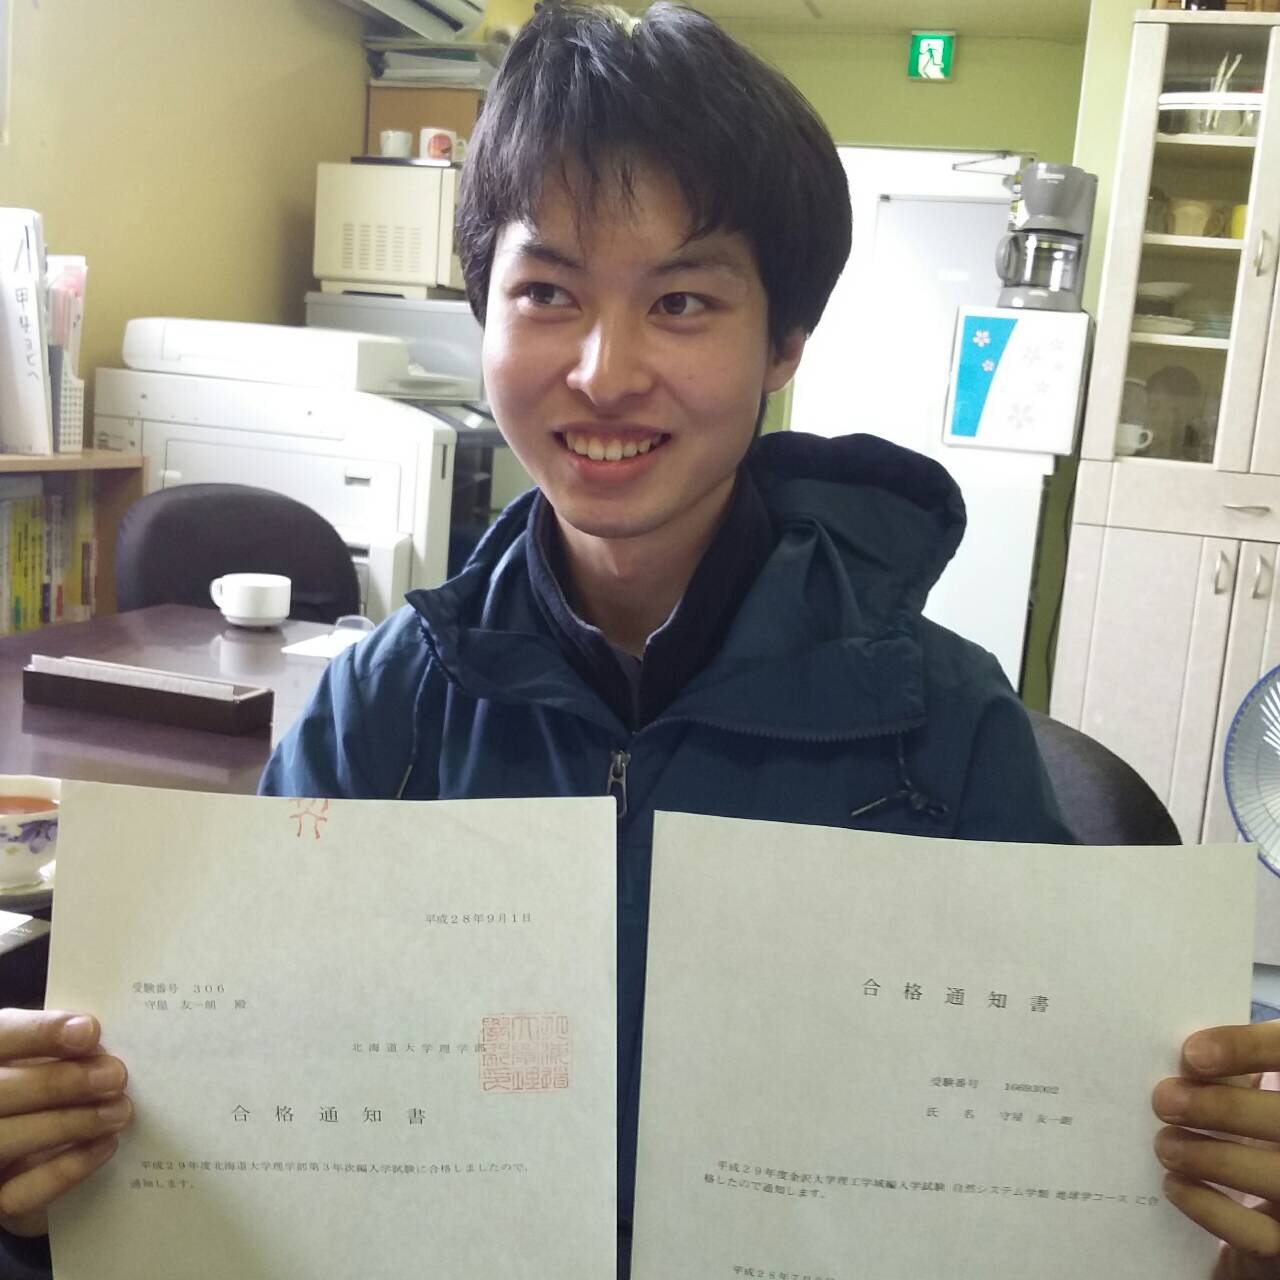 平成28年9月1日
受験番号 306
守屋 友一朗 殿
北海道大学理学部
合格通知書
平成29年度北海道大学理学部第3年次編入学試験に合格しましたので、
通知します。
合格通知書
受験番号 16693002
氏 名 守屋 友一朗
平成29年度金沢大学理工学域編入学試験 自然システム学類 地球学コース に合
格したので通知します。